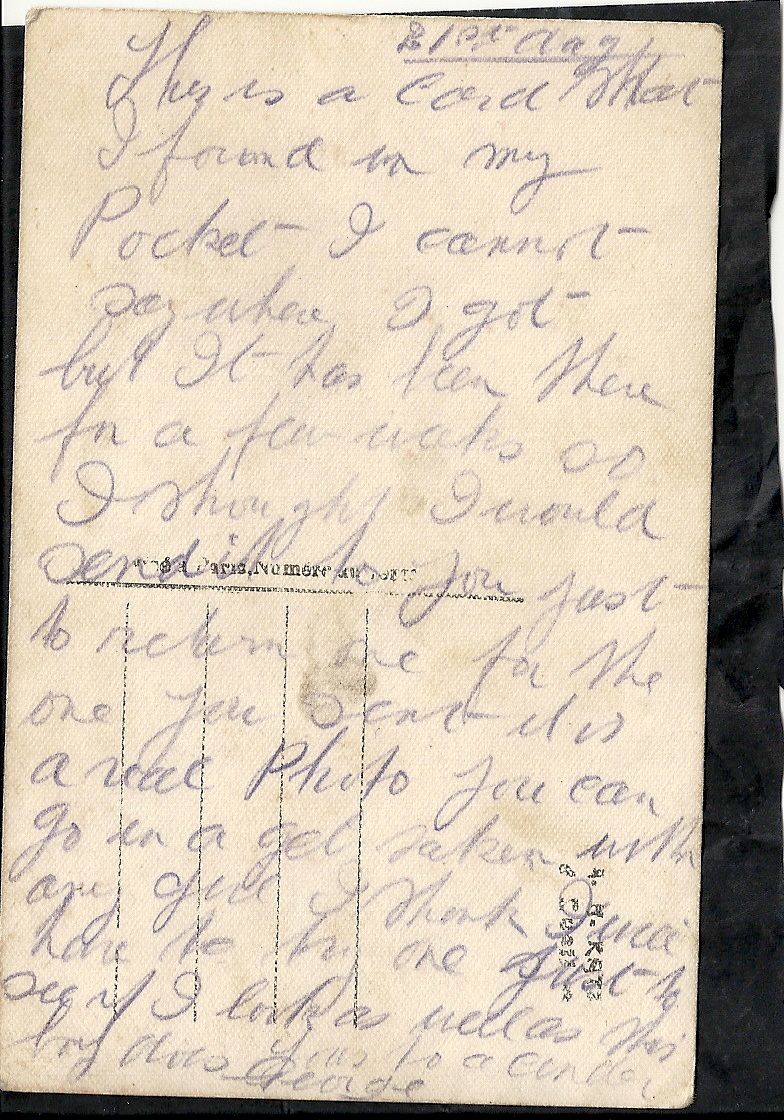 21st day
This is a Card that
I found in my
Pocket I cannot
say where I got
but It has been there
for a few weeks so
I thought I would
send it to you just
Paris, Numero
to return one for the
one you sent it is
a real Photo you can
go in a get taken with
any girl I think I will
have to try one just to
see if I look as well as this
boy does yours to a cinder
George